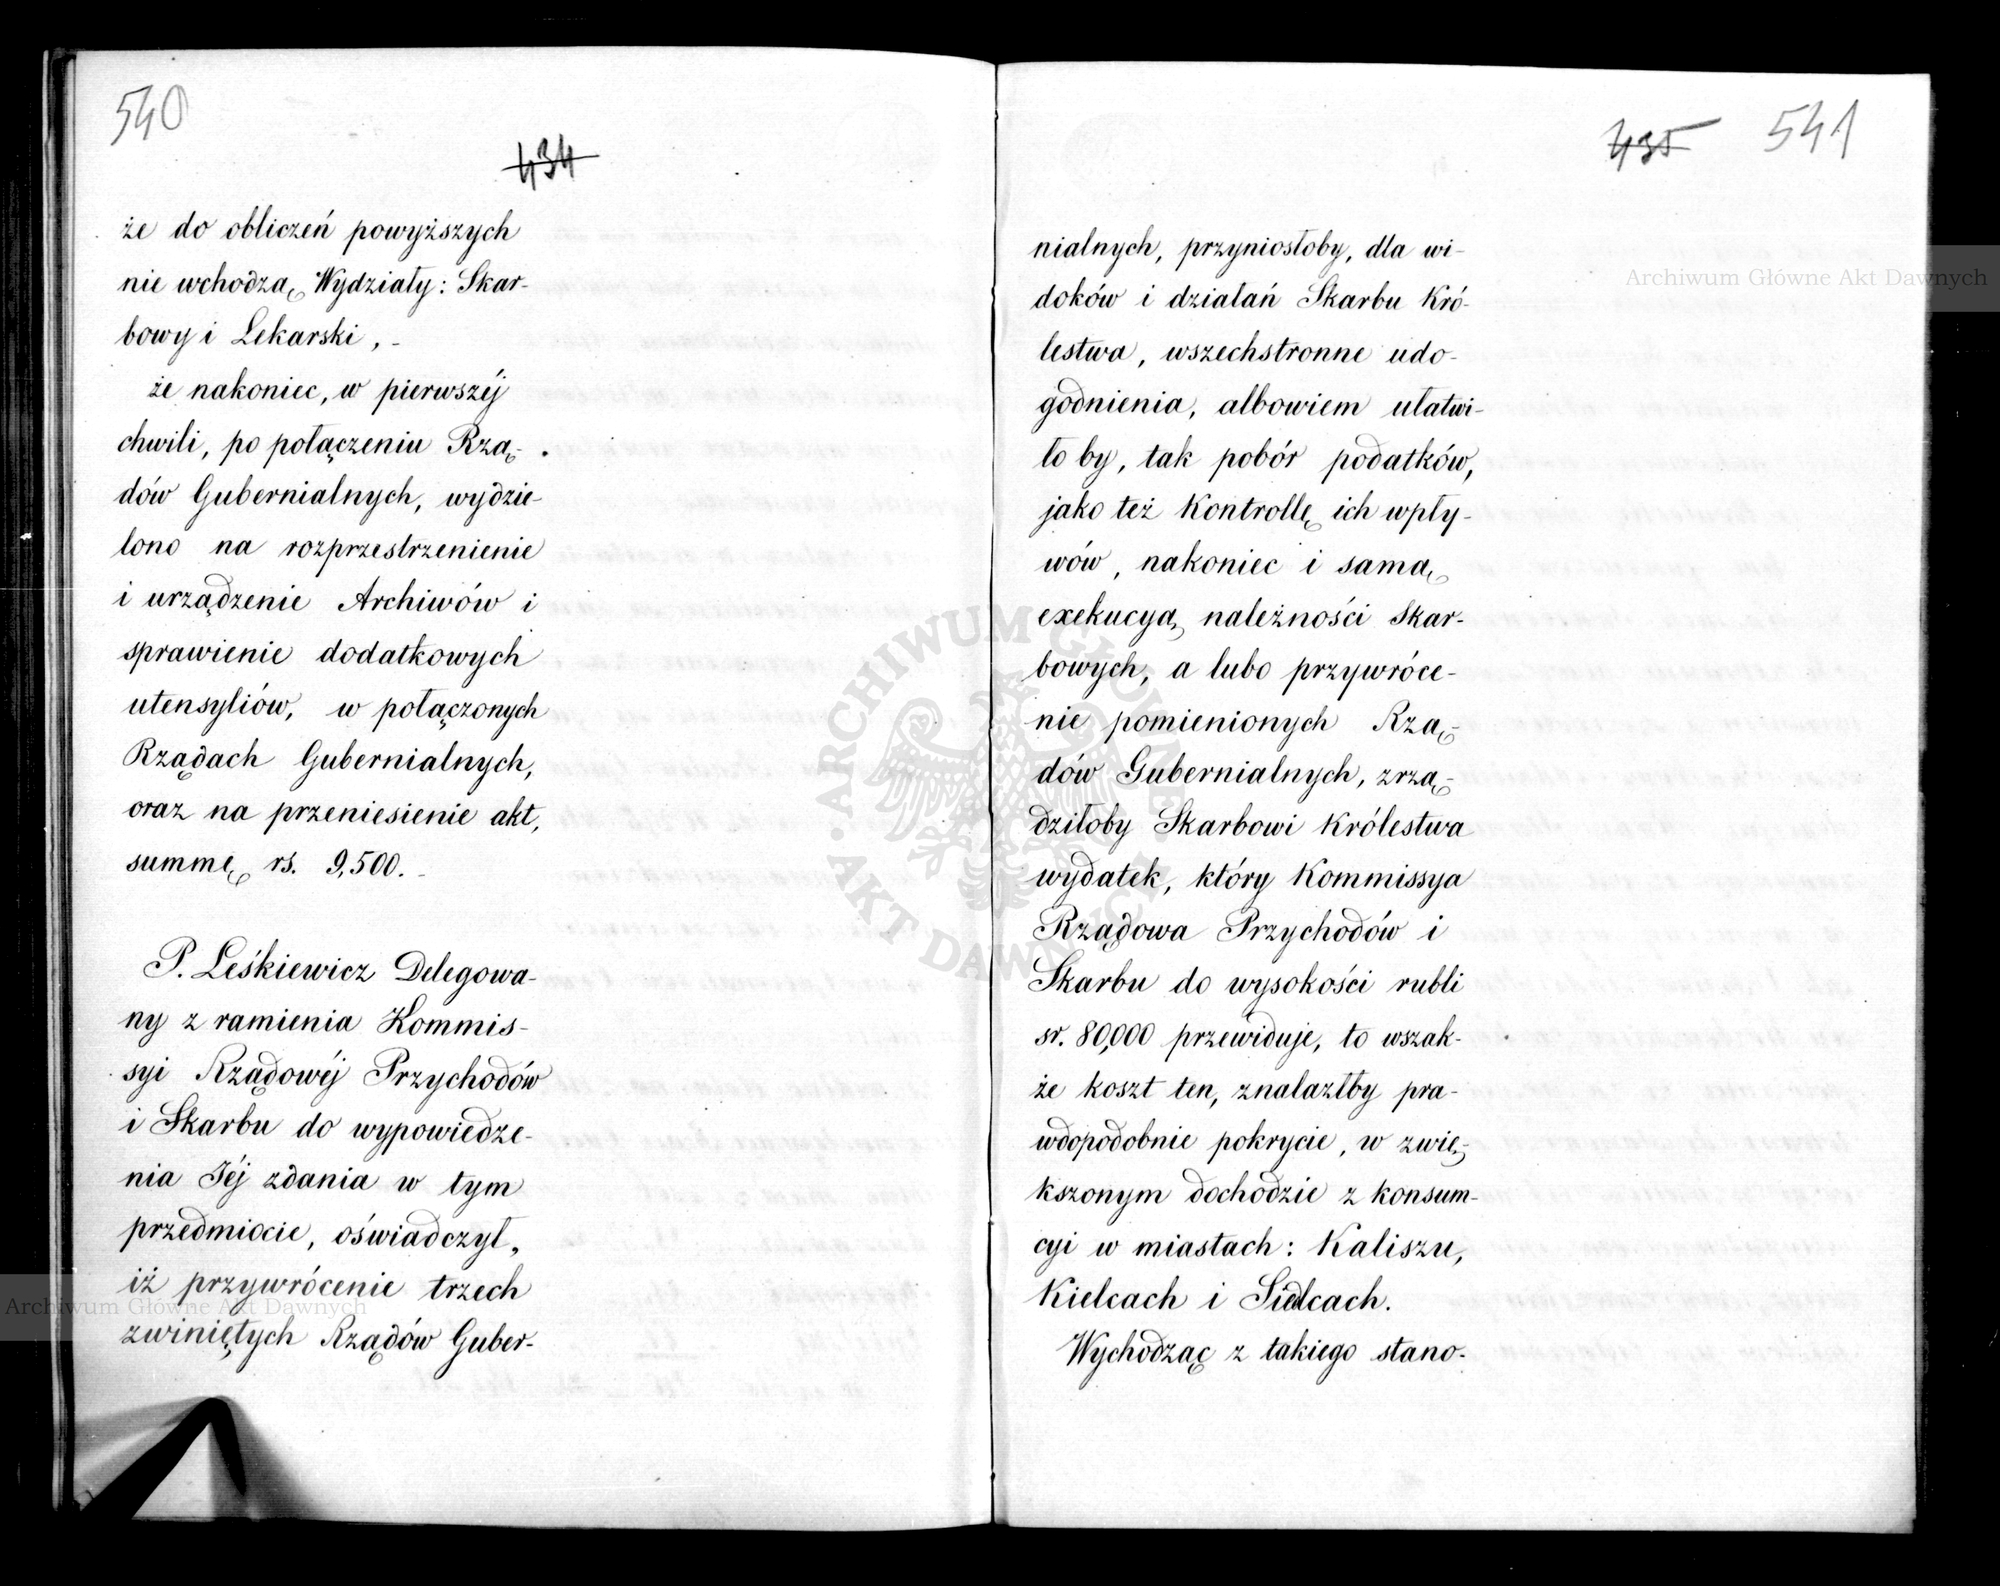 540
434
że do obliczeń powyższych
nie wchodzą Wydziały: Skar-
bowy i Lekarski, -
że nakoniec, w pierwszéj
chwili, po połączeniu Rzą-
dów Gubernialnych, wydzie-
lono na rozprzestrzenienie
i urządzenie Archiwów i
sprawienie dodatkowych
utensyliów, w połączonych
Rządach Gubernialnych,
oraz na przeniesienie akt,
summę rs. 9,500. -
P. Leśkiewicz Delegowa-
ny z ramienia Kommis-
syi Rządowéj Przychodów
i Skarbu do wypowiedze-
nia Jéj zdania w tym
przedmiocie, oświadczył,
iż przywrócenie trzech
zwiniętych Rządów Guber-
435 541
nialnych, przyniosłoby, dla wi-
doków i działań Skarbu Kró-
lestwa, wszechstronne udo-
godnienia, albowiem ułatwi-
ło by, tak pobór podatków,
jako też Kontrollę ich wpły-
wów, nakoniec i samą
exekucyą należności Skar-
bowych, a lubo przywróce-
nie pomienionych Rzą-
dów Gubernialnych, zrzą-
dziłoby Skarbowi Królestwa
wydatek, który Kommissya
Rządowa Przychodów i
Skarbu do wysokości rubli
sr. 80,000 przewiduje, to wszak-
że koszt ten, znalazłby pra-
wdopodobnie pokrycie, w zwię-
kszonym dochodzie z konsum-
cyi w miastach: Kaliszu,
Kielcach i Siedlcach.
Wychodząc z takiego stano-
Archiwum Główne Akt Dawnych
Archiwum Główne Akt Dawnych
ARCHIWUM GŁÓWNE · AKT DAWNYCH ·